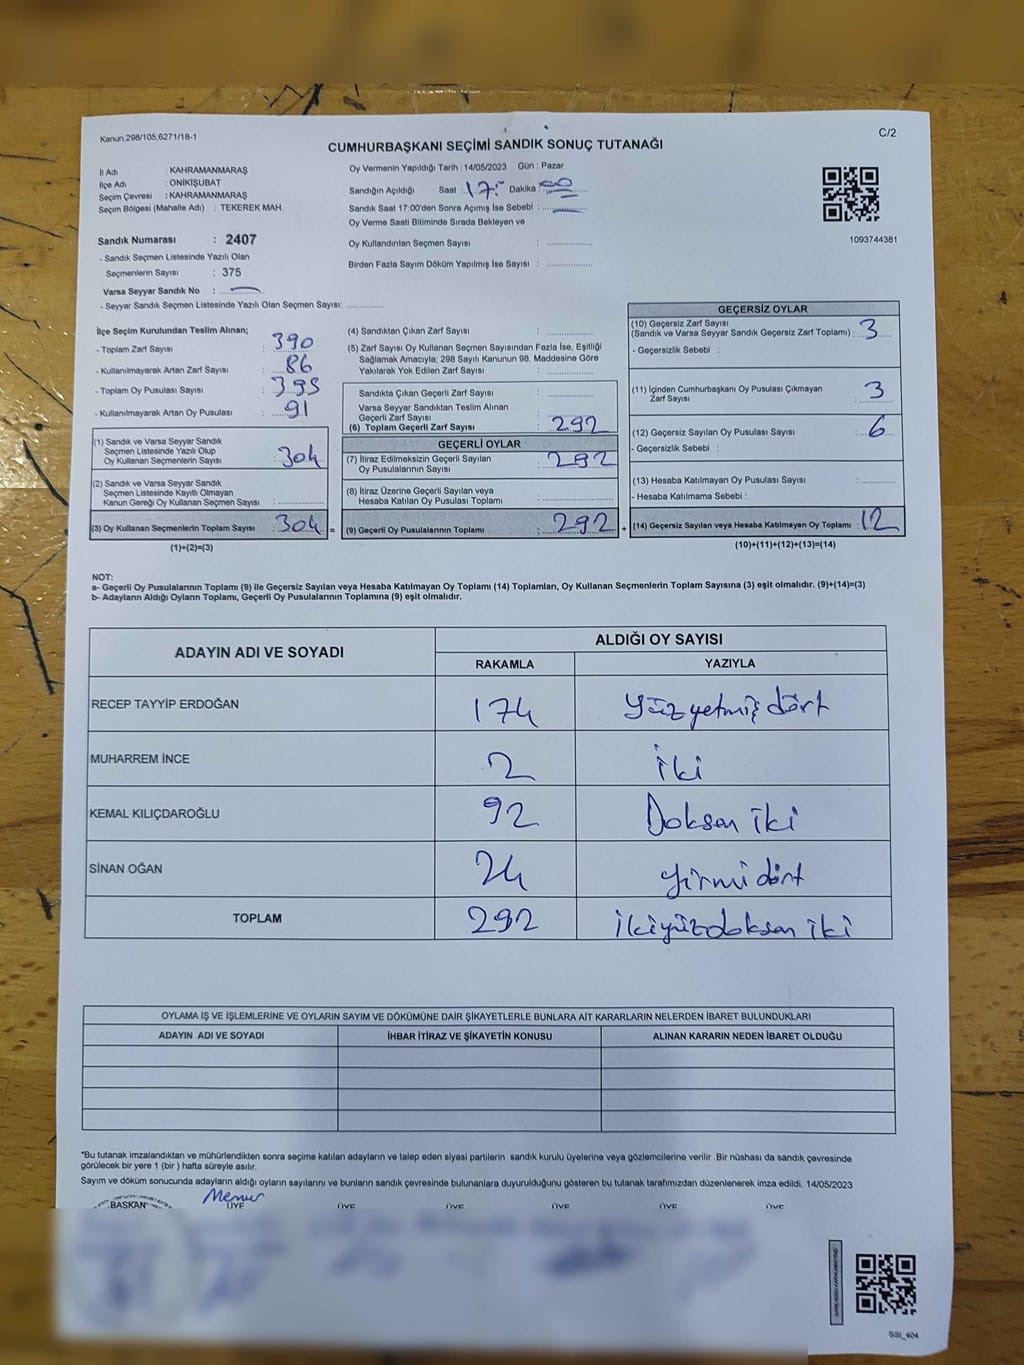 Kanun;298/105,6271/18-1
C/2
CUMHURBAŞKANI SEÇİMİ SANDIK SONUÇ TUTANAĞI
İl Adı : KAHRAMANMARAŞ
İlçe Adı : ONİKİŞUBAT
Seçim Çevresi : KAHRAMANMARAŞ
Seçim Bölgesi (Mahalle Adı) : TEKEREK MAH.
Sandık Numarası : 2407
- Sandık Seçmen Listesinde Yazılı Olan
Seçmenlerin Sayısı : 375
Varsa Seyyar Sandık No :
- Seyyar Sandık Seçmen Listesinde Yazılı Olan Seçmen Sayısı:
Oy Vermenin Yapıldığı Tarih : 14/05/2023 Gün : Pazar
Sandığın Açıldığı Saat : 17:- Dakika : 00
Sandık Saat 17:00'den Sonra Açılmış İse Sebebi :
Oy Verme Saati Bitiminde Sırada Bekleyen ve
Oy Kullandırılan Seçmen Sayısı :
Birden Fazla Sayım Döküm Yapılmış İse Sayısı :
1093744381
İlçe Seçim Kurulundan Teslim Alınan;
- Toplam Zarf Sayısı : 390
- Kullanılmayarak Artan Zarf Sayısı : 86
- Toplam Oy Pusulası Sayısı : 395
- Kullanılmayarak Artan Oy Pusulası : 91
(1) Sandık ve Varsa Seyyar Sandık
Seçmen Listesinde Yazılı Olup
Oy Kullanan Seçmenlerin Sayısı : 304
(2) Sandık ve Varsa Seyyar Sandık
Seçmen Listesinde Kayıtlı Olmayan
Kanun Gereği Oy Kullanan Seçmen Sayısı :
(3) Oy Kullanan Seçmenlerin Toplam Sayısı : 304 =
(1)+(2)=(3)
(4) Sandıktan Çıkan Zarf Sayısı :
(5) Zarf Sayısı Oy Kullanan Seçmen Sayısından Fazla İse, Eşitliği
Sağlamak Amacıyla; 298 Sayılı Kanunun 98. Maddesine Göre
Yakılarak Yok Edilen Zarf Sayısı :
Sandıkta Çıkan Geçerli Zarf Sayısı :
Varsa Seyyar Sandıktan Teslim Alınan
Geçerli Zarf Sayısı :
(6) Toplam Geçerli Zarf Sayısı : 292
GEÇERLİ OYLAR
(7) İtiraz Edilmeksizin Geçerli Sayılan
Oy Pusulalarının Sayısı : 292
(8) İtiraz Üzerine Geçerli Sayılan veya
Hesaba Katılan Oy Pusulası Toplamı :
(9) Geçerli Oy Pusulalarının Toplamı : 292 +
GEÇERSİZ OYLAR
(10) Geçersiz Zarf Sayısı
(Sandık ve Varsa Seyyar Sandık Geçersiz Zarf Toplamı) : 3
- Geçersizlik Sebebi :
(11) İçinden Cumhurbaşkanı Oy Pusulası Çıkmayan
Zarf Sayısı : 3
(12) Geçersiz Sayılan Oy Pusulası Sayısı : 6
- Geçersizlik Sebebi :
(13) Hesaba Katılmayan Oy Pusulası Sayısı :
- Hesaba Katılmama Sebebi :
(14) Geçersiz Sayılan veya Hesaba Katılmayan Oy Toplamı : 12
(10)+(11)+(12)+(13)=(14)
NOT:
a- Geçerli Oy Pusulalarının Toplamı (9) ile Geçersiz Sayılan veya Hesaba Katılmayan Oy Toplamı (14) Toplamları, Oy Kullanan Seçmenlerin Toplam Sayısına (3) eşit olmalıdır. (9)+(14)=(3)
b- Adayların Aldığı Oyların Toplamı, Geçerli Oy Pusulalarının Toplamına (9) eşit olmalıdır.
ADAYIN ADI VE SOYADI
ALDIĞI OY SAYISI
RAKAMLA YAZIYLA
RECEP TAYYİP ERDOĞAN 174 Yüzyetmiş dört
MUHARREM İNCE 2 iki
KEMAL KILIÇDAROĞLU 92 Doksan iki
SİNAN OĞAN 24 yirmi dört
TOPLAM 292 ikiyüzdoksan iki
OYLAMA İŞ VE İŞLEMLERİNE VE OYLARIN SAYIM VE DÖKÜMÜNE DAİR ŞİKAYETLERLE BUNLARA AİT KARARLARIN NELERDEN İBARET BULUNDUKLARI
ADAYIN ADI VE SOYADI İHBAR İTİRAZ VE ŞİKAYETİN KONUSU ALINAN KARARIN NEDEN İBARET OLDUĞU
*Bu tutanak imzalandıktan ve mühürlendikten sonra seçime katılan adayların ve talep eden siyasi partilerin sandık kurulu üyelerine veya gözlemcilerine verilir .Bir nüshası da sandık çevresinde
görülecek bir yere 1 (bir ) hafta süreyle asılır.
Sayım ve döküm sonucunda adayların aldığı oyların sayılarını ve bunların sandık çevresinde bulunanlara duyurulduğunu gösteren bu tutanak tarafımızdan düzenlenerek imza edildi. 14/05/2023
Memur
BAŞKAN ÜYE ÜYE ÜYE ÜYE ÜYE ÜYE
SSI_404